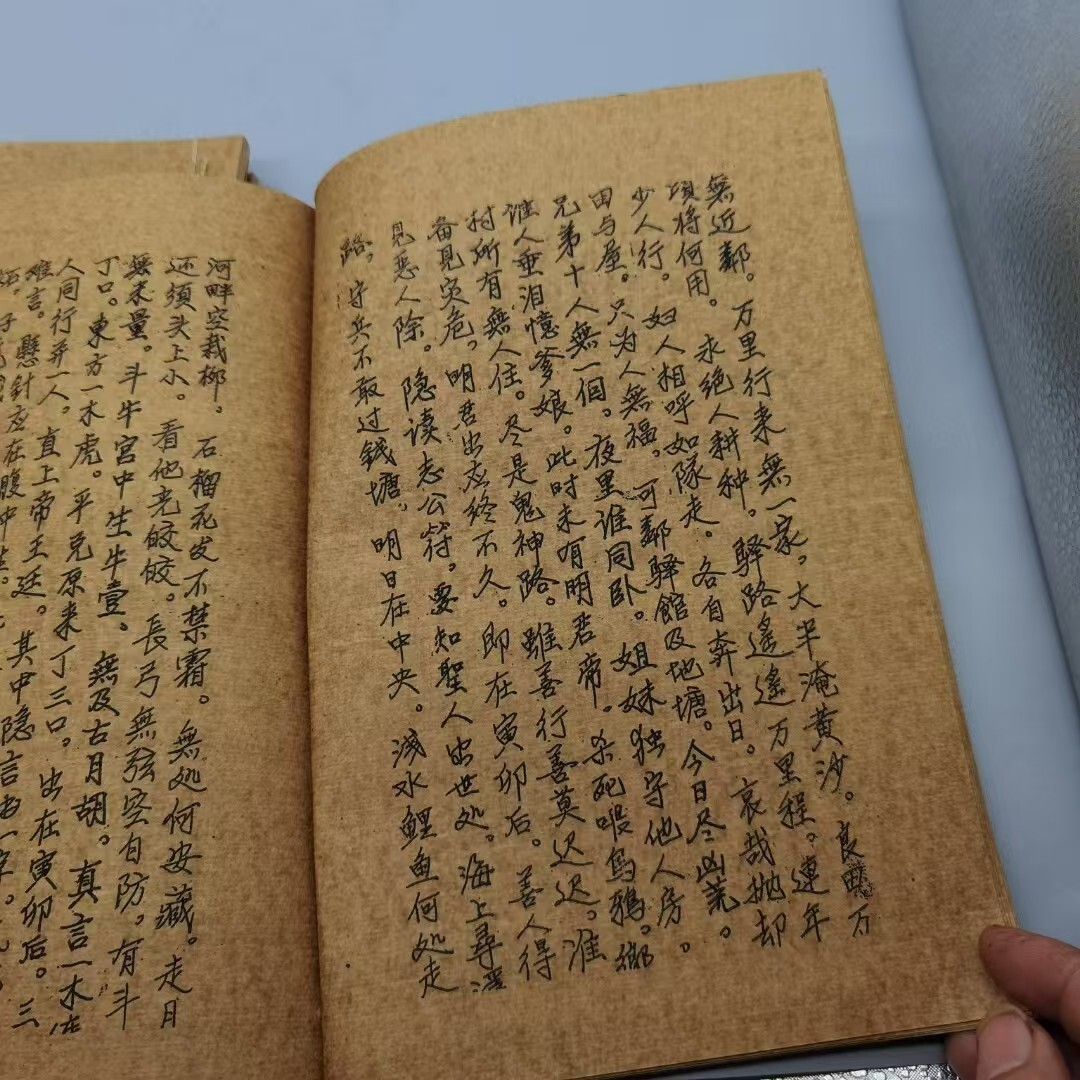 無近鄰。万里行来無一家,大半淹黄沙。良疇万
顷将何用。永绝人耕种。驛路遥遥万里程。連年
少人行。妇人相呼如隊走。各自奔出日。哀哉抛却
田与屋。只为人無福,可鄰驛館及地塘。今日尽凶荒。
兄弟十人無一個。夜里谁同卧。姐妹独守他人房。
谁人垂泪憶爹娘。此时未有明君帝。杀死喂鸟鴉。鄉
村所有無人住。尽是鬼神路。雖善行善莫迟迟。准
备見灾危,明君出应终不久。即在寅卯后。善人得
見恶人除。隐读志公符。要知聖人出世处。海上尋溪
路,守兵不敢过錢塘,明日在中央。浅水鲤鱼何処走
河畔空栽柳,石榴花发不禁霜。無処何安藏。走日
还須头上小。看他光皎皎。長弓無弦空自防。有斗
無米量。斗牛宫中生牛壹、無及古月胡。真言一木在
丁口。東方一木虎。平免原来丁三口。出在寅卯后。三
人同行弄一人。直上帝王廷。其中隐言
难言。懸針应在腹中